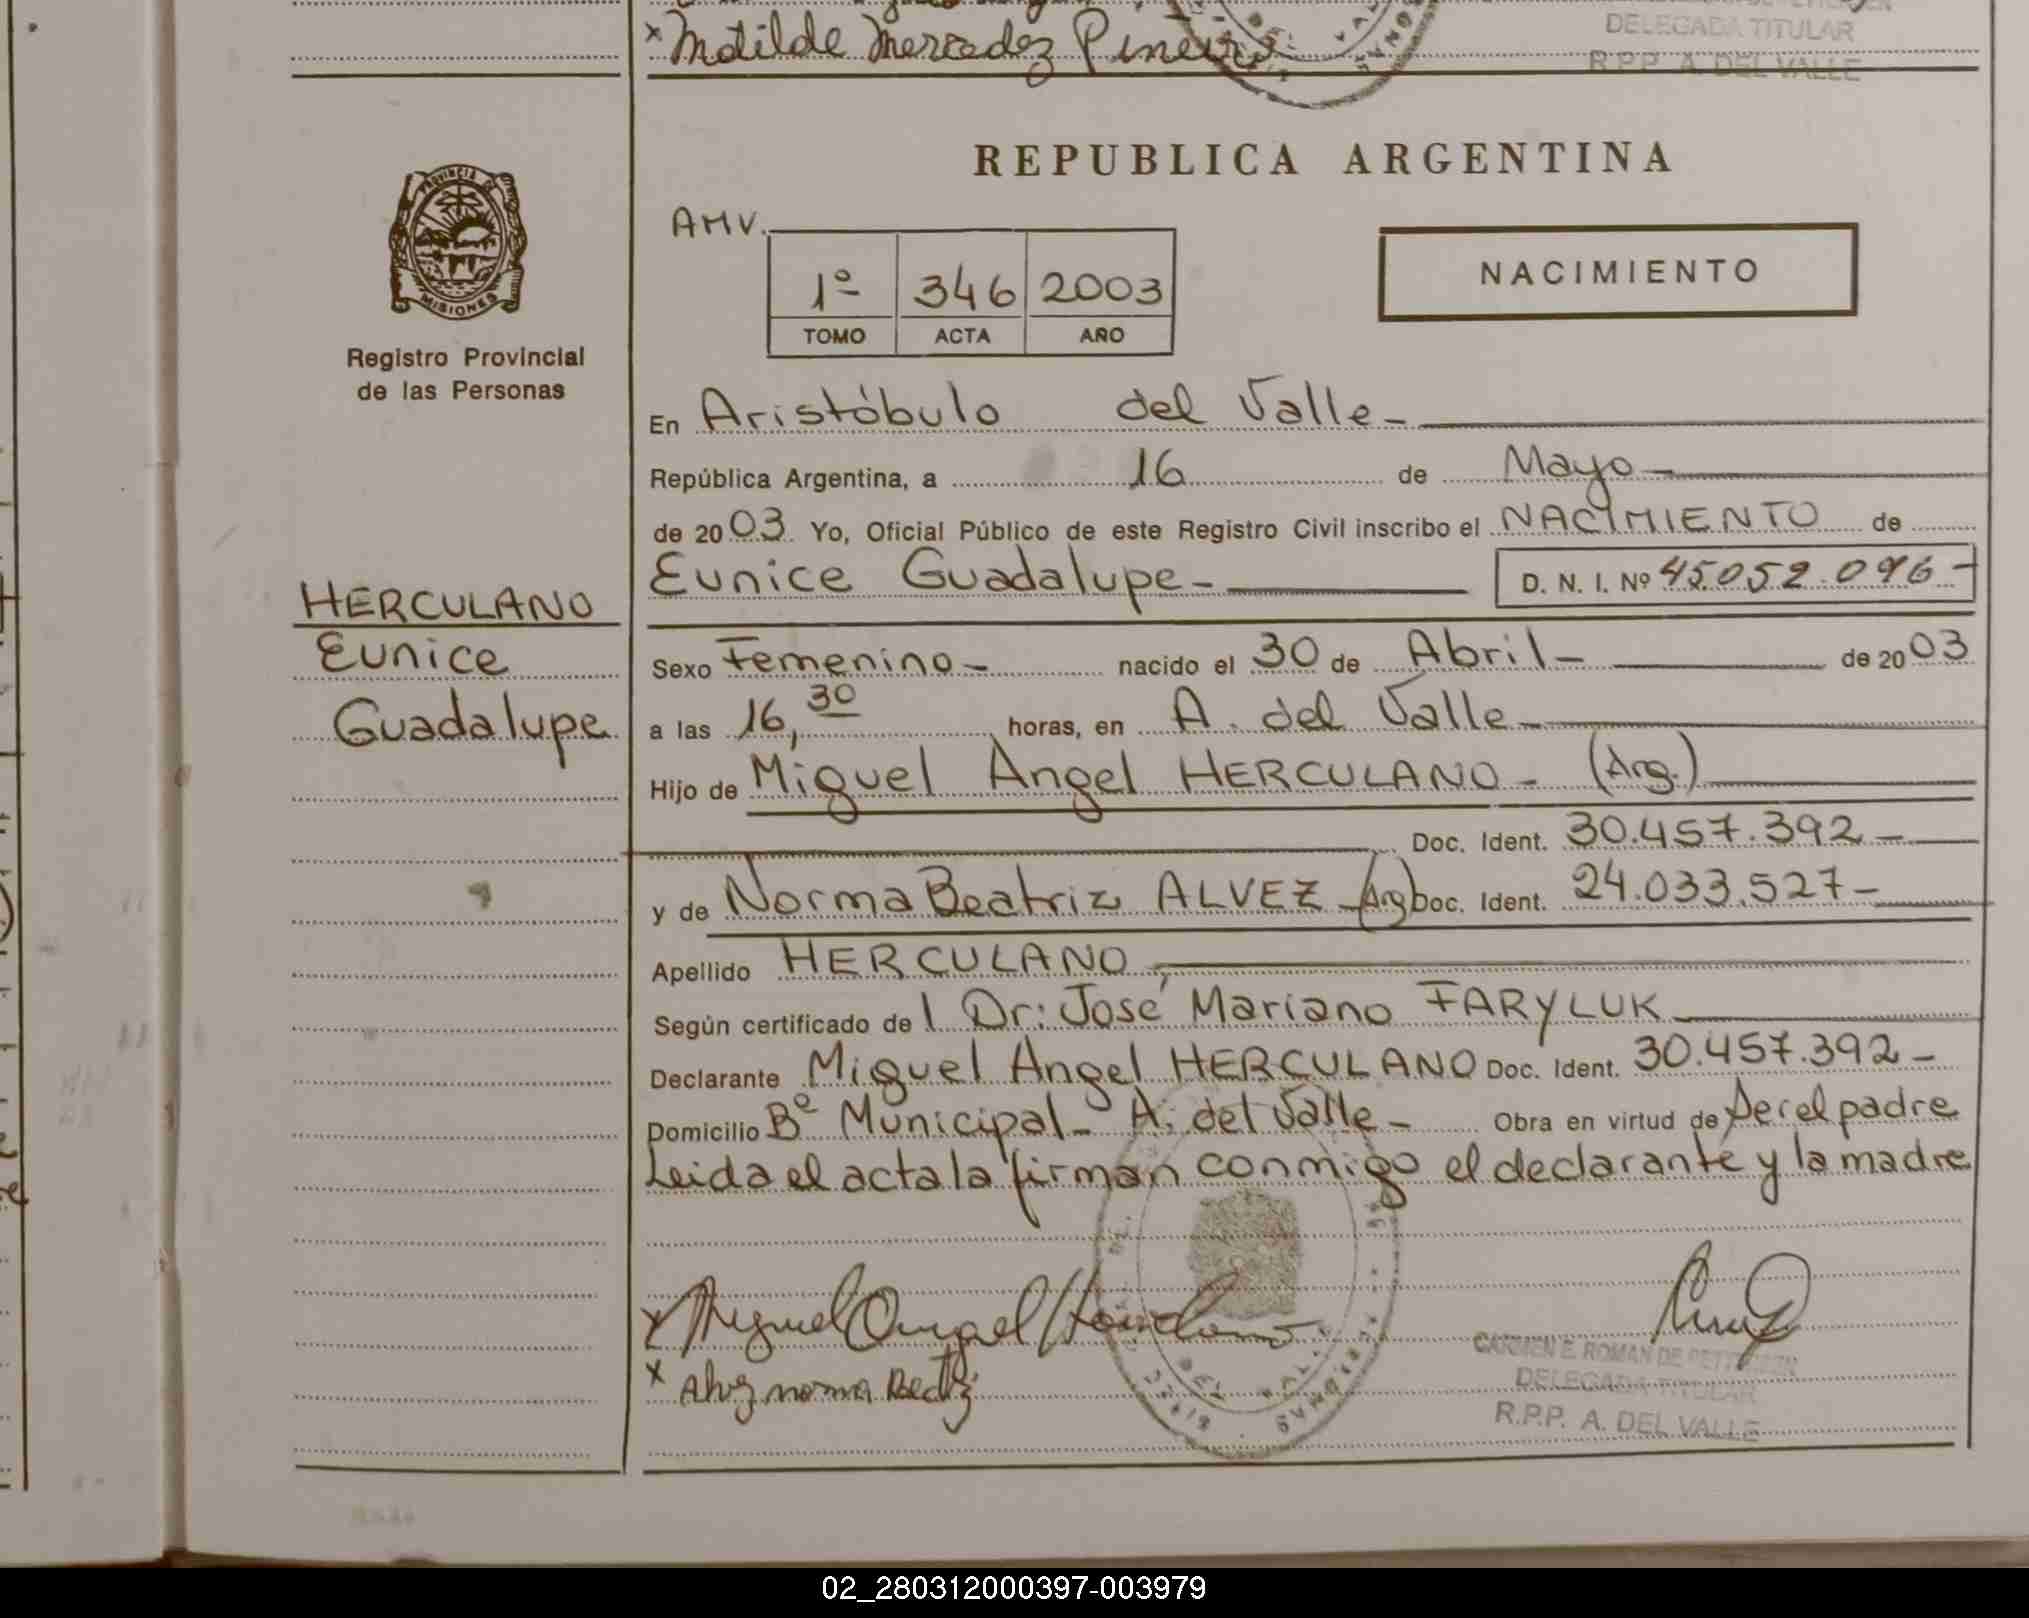 x Matilde Mercedez Pineiro
DELEGADA TITULAR
R.P.P. A. DEL VALLE
REPUBLICA ARGENTINA
PROVINCIA DE
MISIONES
Registro Provincial
de las Personas
AMV.
1º 346 2003
TOMO ACTA AÑO
NACIMIENTO
En Aristóbulo del Valle-
República Argentina, a 16 de Mayo-
de 2003 Yo, Oficial Público de este Registro Civil inscribo el NACIMIENTO de
Eunice Guadalupe- D. N. I. Nº 45.052.096-
HERCULANO
Eunice
Guadalupe
Sexo Femenino- nacido el 30 de Abril- de 2003
a las 16,30 horas, en A. del Valle-
Hijo de Miguel Angel HERCULANO- (Arg.)
Doc. Ident. 30.457.392-
y de Norma Beatriz ALVEZ-(Arg) Doc. Ident. 24.033.527-
Apellido HERCULANO
Según certificado del Dr: José Mariano FARYLUK
Declarante Miguel Angel HERCULANO Doc. Ident. 30.457.392-
Domicilio Bº Municipal- A. del Valle- Obra en virtud de ser el padre
Leida el acta la firman conmigo el declarante y la madre
x Miguel Angel Herculano
x Alvez norma Beatriz
CARMEN E. ROMAN DE
DELEGADA TITULAR
R.P.P. A. DEL VALLE
02_280312000397-003979